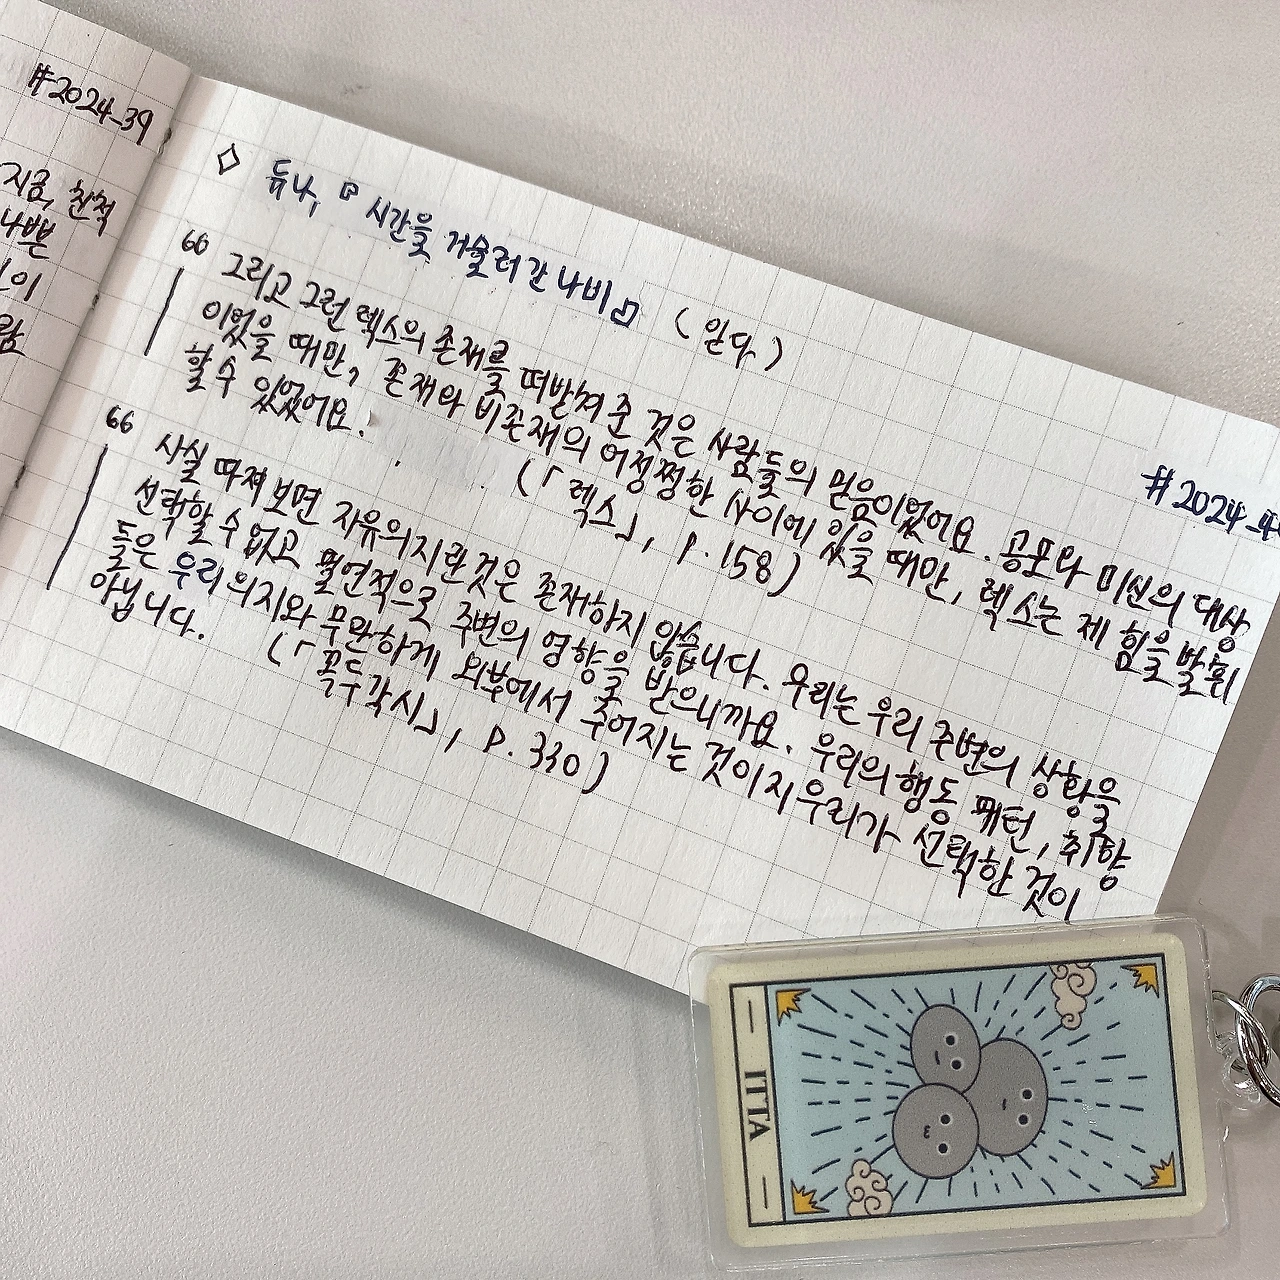 #2024_39
지금, 친척
나쁜
◇ 듀나, 『시간을 거슬러 간 나비』 (읻다)
#2024_4
66 그리고 그런 렉스의 존재를 떠받쳐 준 것은 사람들의 믿음이었어요. 공포와 미신의 대상
이었을 때만, 존재와 비존재의 어정쩡한 사이에 있을 때만, 렉스는 제 힘을 발휘
할 수 있었어요. (「렉스」, p.158)
66 사실 따져보면 자유의지란 것은 존재하지 않습니다. 우리는 우리 주변의 상황을
선택할 수 없고 필연적으로 주변의 영향을 받으니까요. 우리의 행동 패턴, 취향
들은 우리 의지와 무관하게 외부에서 주어지는 것이지 우리가 선택한 것이
아닙니다. (「꼭두각시」, p.330)
ITTA